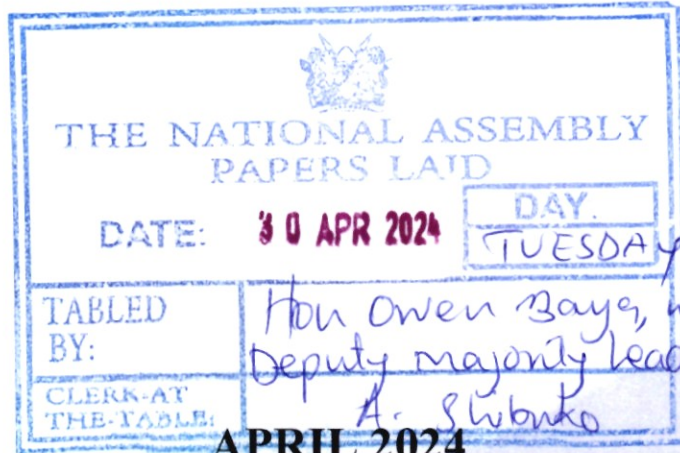 THE NATIONAL ASSEMBLY
PAPERS LAID
DATE: 30 APR 2024
DAY.
TUESDAY
TABLED
BY:
Hon Owen Baya,
Deputy majority Lead
CLERK-AT
THE-TABLE:
A. Shibuko
APRIL 2024